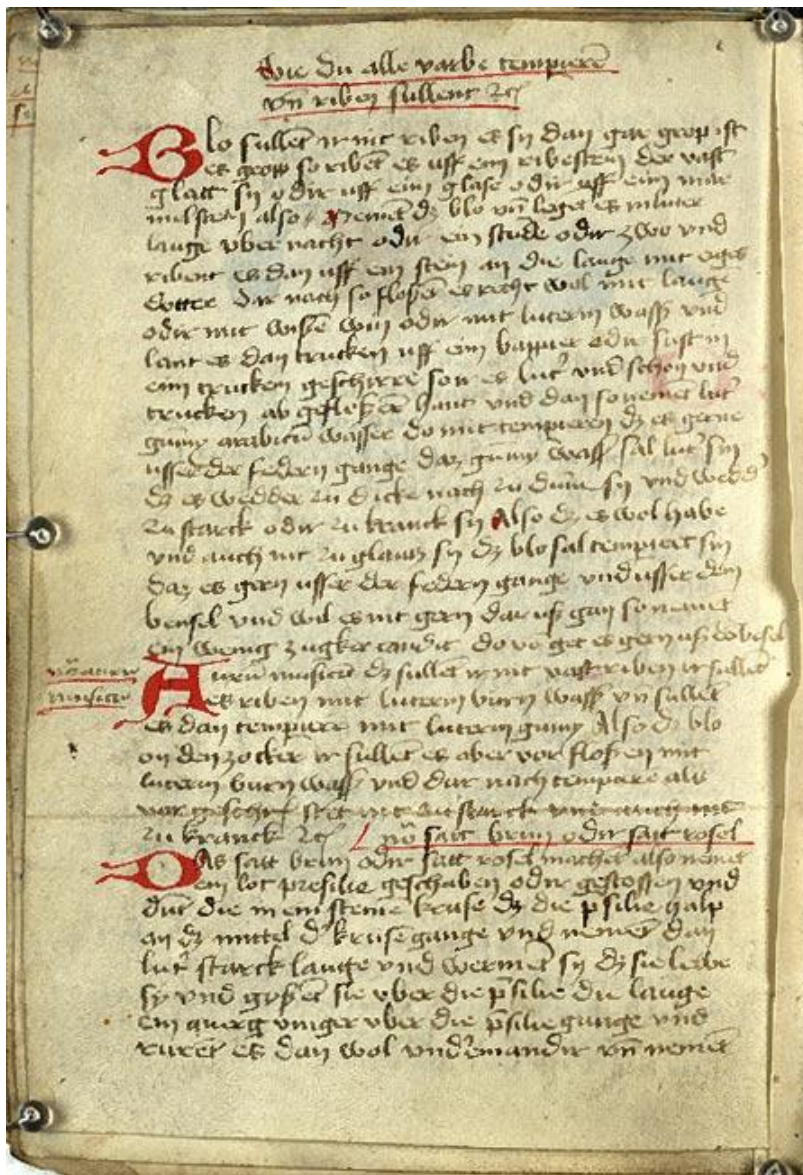 wie du alle varbe temperirē
vn̄ riben sullent ⁊c
Blo sullēt ir nit riben es sy dan gar grop ist
es grop so ribēt es uff ein ribestein der vast
glatt sy odir uff eim glase odir uff eim mar
mulstein also Nement dz blo vn̄ leget es in luter
lauge vber nacht odir ein stūde odir zwo vnd
ribent es dan uff ein stein an die lauge mit eiges
dotter dar nach so floßēt es recht wol mit lauge
odir mit wißē win odir mit luterm wasser vnd
lant es dan trucken uff ein bappier odir sust in
eim trucken geschirre so ir es lut' vnd schon vnd
trucken ab gefloßēt hant vnd dan so nemēt lut'
gumy arabicū wasser do mit temperirēt dz es gerne
usser der federn gange daz gumy wasser sal lut' sin
dz es wedder zu dicke nach zu dūne sy vnd wedd'
zu starck odir zu kranck sy Also dz es wol habe
vnd auch nit zu glantz sy dz blo sal tempiert sin
daz es gern usser der federn gange vnd usser dem
bensel vnd wil es nit gern dar uß gan so nemet
ein wenig zugker candit do vō get es gern uß dē bēsel
nō aurū
musicū
Aurū musicū dz sullēt ir nit vast riben ir sullēt
es riben mit luterm burn wasser vn̄ sullēt
es dan temperē mit luterm gumy Also dz blo
on den zocker ir sullēt es aber vor floßen mit
luterm burn wasser vnd dar nach tempare als
vor geschr' stet nit zu starck vnd auch nit
zu kranck ⁊c nō satt brun odir satt rosel
Das satt brun odir satt rosel machet also nemēt
ein lot presilie geschaben odir gestossen vnd
dūt die in ein steine kruse dz die psilie halp
an dz mittel d' kruse gange vnd nemēt dan
lut' starck lauge vnd wermēt sy dz sie lewe
sy vnd gyßēt sie vber die psilie die lauge
ein querg vinger vber die psilie gange vnd
rurēt es dan wol vnd'einandir vn̄ nemēt